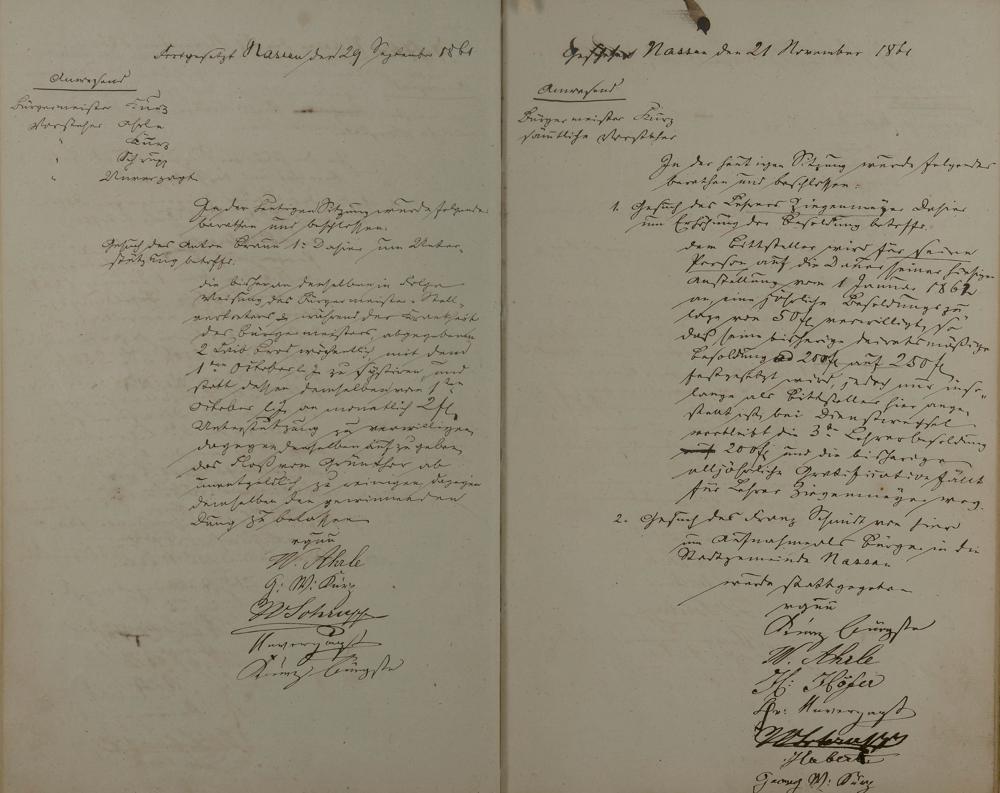 Fortgesetzt Nassau den 29 September 1861
Anwesend
Bürgermeister Kurz
Vorsteher Ahrle
" Kurz
" Schrupp
" Unverzagt
In der heutigen Sitzung wurde folgendes
berathen und beschlossen.
Gesuch des Anton Braun 1r dahier um Unter-
stützung betreffs.
die bisher an denselben in Folge
Weisung des Bürgermeister-Stell-
vertreters während der Krankheit
des Bürgermeisters, abgegebenen
2 Laib Brod wöchentlich mit dem
1ten October l. J. zu sistiren, und
statt dessen demselben vom 1ten
October l. J. an monatlich 2 fl
Unterstützung zu verwilligen
dagegen denselben aufzugeben
das Floß von Günther ab
unentgeldlich zu reinigen, dagegen
demselben den gewinnenden
Dung zu belassen
vguu
W. Ahrle
G: W: Kurz
W Schrupp
Unverzagt
Kurz Bürgstr
Geschehen Nassau den 21 November 1861
Anwesend
Bürgermeister Kurz
sämmtliche Vorsteher
In der heutigen Sitzung wurde folgendes
berathen und beschlossen:
1. Gesuch des Lehrers Ziegenmeyer dahier
um Erhöhung der Besoldung betreffs.
dem Bittsteller wird für seine
Person auf die Dauer seiner hiesigen
Anstellung vom 1 Januar 1862
an eine jährliche Besoldungszu-
lage von 50 fl verwilligt, so
daß seine bisherige decretmäßige
Besoldung ad 200 fl auf 250 fl
festgesetzt wird, jedoch nur inso-
lange als Bittsteller hier ange-
stellt ist, bei Dienstwechsel
verbleibt die 3te Lehrerbesoldung
auf 200 fl und die bisherige
alljährliche Gratification fällt
für Lehrer Ziegenmeyer weg.
2. Gesuch des Franz Schmidt von hier
um Aufnahme als Bürger in die
Stadtgemeinde Nassau
wurde stattgegeben
vguu
Kurz Bürgstr
W. Ahrle
H: Höfer
Unverzagt
W Schrupp
Haberl
Georg W: Kurz